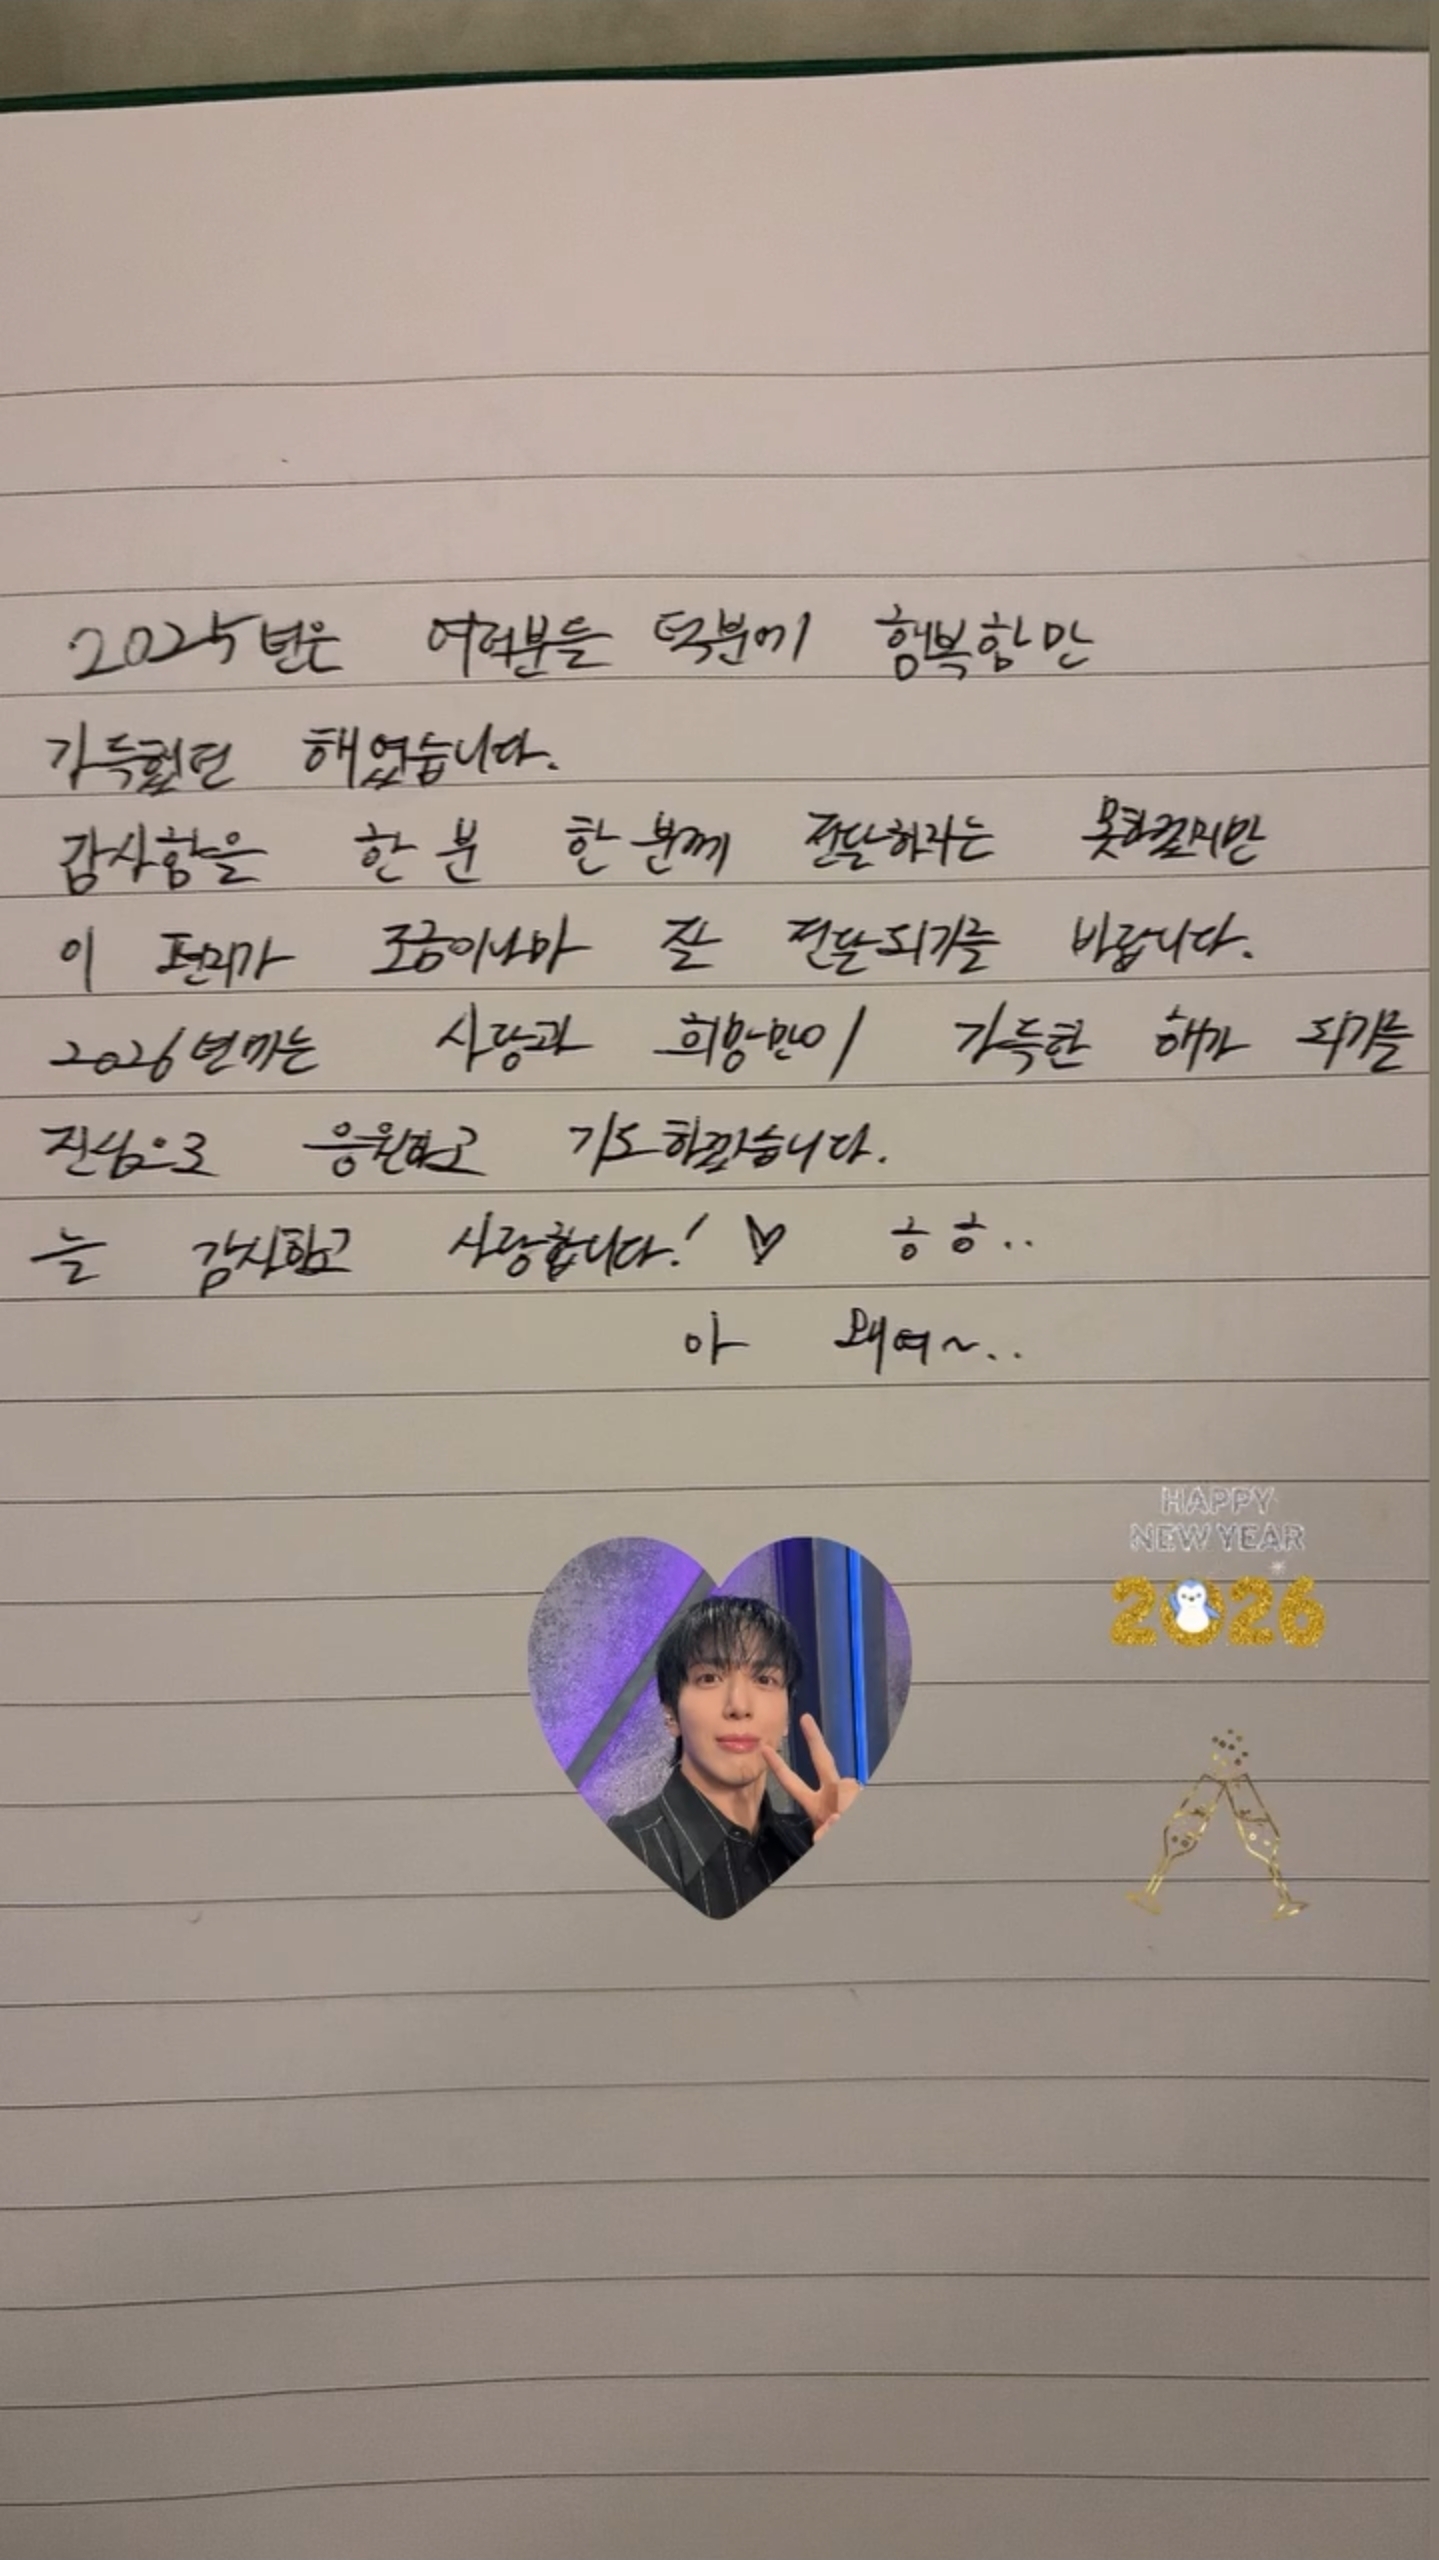 2025년은 여러분들 덕분에 행복함만
가득했던 해였습니다.
감사함을 한 분 한 분께 전달하라는 못하겠지만
이 편지가 조금이나마 잘 전달되기를 바랍니다.
2026년에는 사랑과 희망만이 가득한 해가 되기를
진심으로 응원하고 기도하겠습니다.
늘 감사하고 사랑합니다! ♡ ㅎㅎ..
아 왜여~..
HAPPY
NEW YEAR
2026